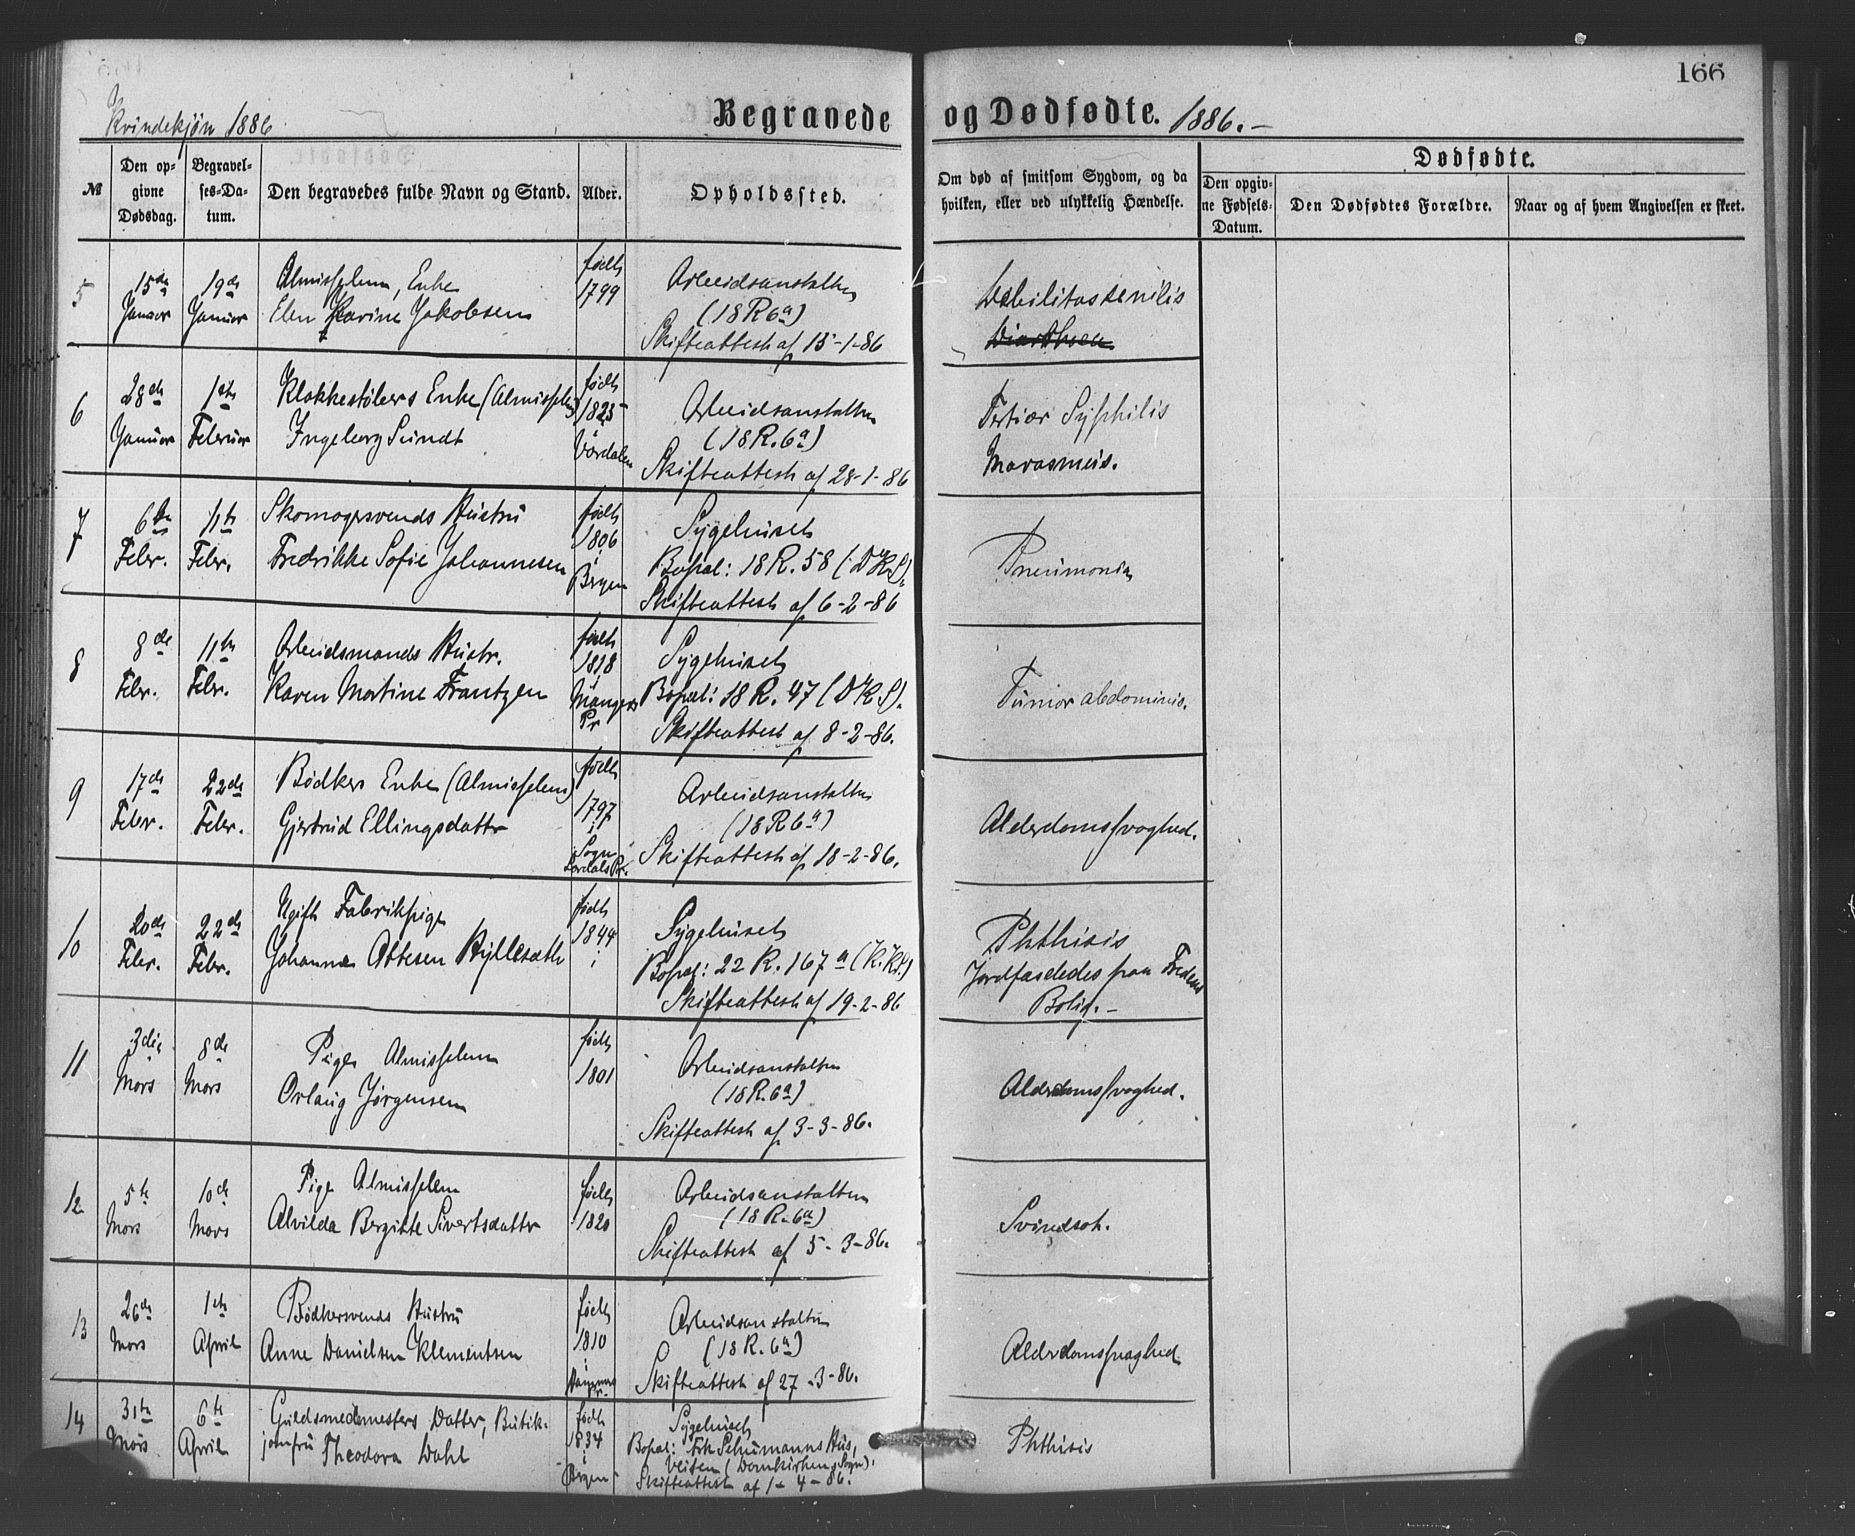 166
Kvindekjøn 1886
Begravede og Dødfødte. 1886.-
№
Den op-
givne
Dødsdag.
Begravel-
ses-Da-
tum.
Den begravedes fulde Navn og Stand.
Alder.
Opholdssted.
Om død af smitsom Sygdom, og da
hvilken, eller ved ulykkelig Hændelse.
Dødfødte.
Den opgiv-
ne Fødsels-
Datum.
Den Dødfødtes Forældre.
Naar og af hvem Angivelsen er skeet.
5
15de
Januar
19de
Januar
Almisselem, Enke
Elen Karine Jakobsen
født
1799
Arbeidsanstalten
(18 R 6a)
Skifteattest af 15-1-86
Debilitas senilis
6
28de
Januar
1ste
Februar
Klokkestølers Enke (Almisselem)
Ingeborg Sundt
født
1825
i
Vørdalen
Arbeidsanstalten
(18 R. 6a)
Skifteattest af 28-1-86
Tertiær Syphilis
Marasmus.
7
6te
Febr.
11te
Febr.
Skomagersvends Hustru
Fredrikke Sofie Johannesen
født
1806
i
Bergen
Sygehuset
Bopæl: 18 R. 58 (DKS).
Skifteattest af 6-2-86
Pneumonia
8
8de
Febr.
11te
Febr.
Arbeidsmands Hustr.
Karen Martine Frantzen
født
1818
i
Mangers
Pr
Sygehuset
Bopæl: 18 R. 47 (DKS).
Skifteattest af 8-2-86.
Tumor abdominis.
9
17de
Febr.
22de
Febr.
Bødkers Enke (Almisselem)
Gjertrud Ellingsdatter
født
1797
i
Sogn
Lærdals Pr.
Arbeidsanstalten
(18 R 6a)
Skifteattest af 18-2-86.
Alderdomssvaghed.
10
20de
Febr.
22de
Febr.
Ugift Fabrikpige
Johanne Attesen Hyllesæth
født
1844
i
Sygehuset
Bopæl: 22 R. 167a (K.K.S)
Skifteattest af 19-2-86
Phthisis
Jordfæstedes paa Fredens
Bolig.-
11
3die
Mars
8de
Mars
Pige Almisselem
Orlaug Jørgensen
født
1801
Arbeidsanstalten
(18 R. 6a)
Skifteattest af 3-3-86.
Alderdomssvaghed.
12
5te
Mars
10de
Mars
Pige Almisselem
Alvilda Bergitte Sivertsdatter
født
1820
Arbeidsanstalten
(18 R. 6a)
Skifteattest af 5-3-86.
Svindsot.
13
26de
Mars
1ste
April
Bødkersvends Hustru
Anne Danielsen Klementsen
født
1810
i
Arbeidsanstalten
(18 R. 6a)
Skifteattest af 27-3-86.
Alderdomssvaghed
14
31te
Mars
6te
April
Guldsmedmesters Datter, Butik-
jomfru Theodora Dahl
født
1834
i
Bergen
Sygehuset
Bopæl: Frk Schumanns Hus,
Veiten (Domkirkens Sogn).
Skifteattest af 1-4-86.
Phthisis